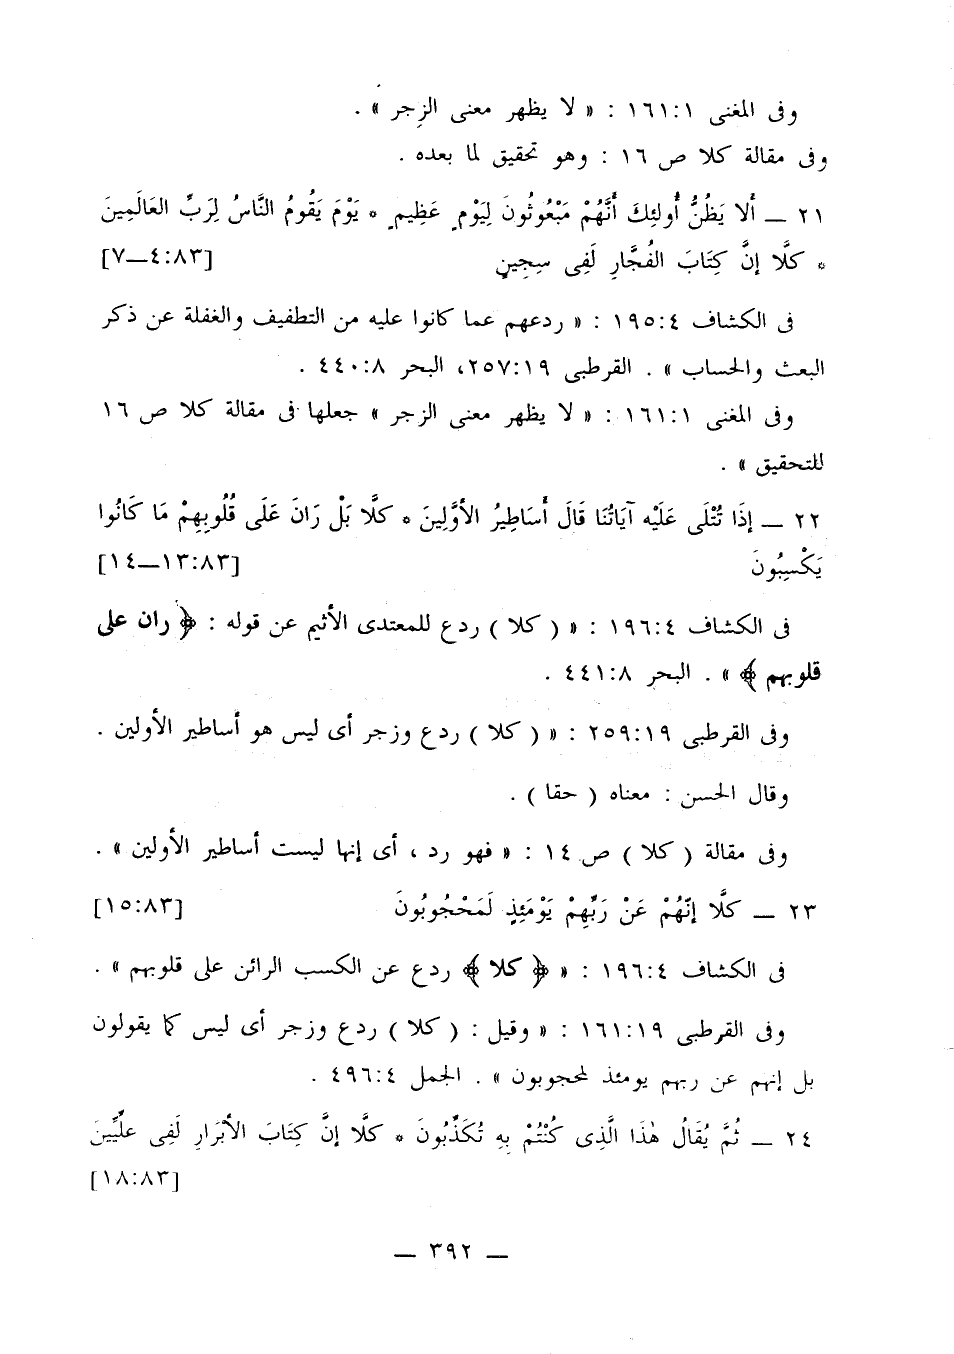 وفى المغنى ١ : ١٦١ : « لا يظهر معنى الزجر » .
وفى مقالة كلا ص ١٦ : وهو تحقيق لما بعده .
٢١ ــ أَلا يَظُنُّ أُولئِكَ أَنَّهُمْ مَبْعُوثُونَ لِيَوْمٍ عَظِيمٍ * يَوْمَ يَقُومُ النَّاسُ لِرَبِّ العَالَمِينَ
* كَلَّا إنَّ كِتَابَ الفُجَّارِ لَفِى سِجِينٍ [٨٣:٤ــ٧]
فى الكشاف ٤ : ١٩٥ : « ردعهم عما كانوا عليه من التطفيف والغفلة عن ذكر
البعث والحساب » . القرطبى ١٩ : ٢٥٧، البحر ٨ : ٤٤٠ .
وفى المغنى ١ : ١٦١ : « لا يظهر معنى الزجر » جعلها فى مقالة كلا ص ١٦
للتحقيق » .
٢٢ ــ إذَا تُتْلَى عَلَيْه آيَاتُنَا قَالَ أَسَاطِيرُ الأوَّلِينَ * كلَّا بَلْ رَانَ عَلَى قُلُوبِهِمْ مَا كَانُوا
يَكْسِبُونَ [٨٣:١٣ــ١٤]
فى الكشاف ٤ : ١٩٦ : « ( كلا ) ردع للمعتدى الأثيم عن قوله : ﴿ ران على
قلوبهم ﴾ » . البحر ٨ : ٤٤١ .
وفى القرطبى ١٩ : ٢٥٩ : « ( كلا ) ردع وزجر أى ليس هو أساطير الأولين .
وقال الحسن : معناه ( حقا ) .
وفى مقالة ( كلا ) ص ١٤ : « فهو رد ، أى إنها ليست أساطير الأولين » .
٢٣ ــ كَلَّا إنَّهُمْ عَنْ رَبِّهِمْ يَوْمَئِذٍ لَمَحْجُوبُونَ [٨٣:١٥]
فى الكشاف ٤ : ١٩٦ : « ﴿ كلا ﴾ ردع عن الكسب الرائن على قلوبهم » .
وفى القرطبى ١٩ : ١٦١ : « وقيل : ( كلا ) ردع وزجر أى ليس كما يقولون
بل إنهم عن ربهم يومئذ لمحجوبون » . الجمل ٤ : ٤٩٦ .
٢٤ ــ ثُمَّ يُقَالُ هٰذَا الَّذِى كُنْتُمْ بِهِ تُكَذِّبُونَ * كَلَّا إنَّ كِتَابَ الأبْرَارِ لَفِى علِّيِّينَ
[٨٣:١٨]
ــ ٣٩٢ ــ